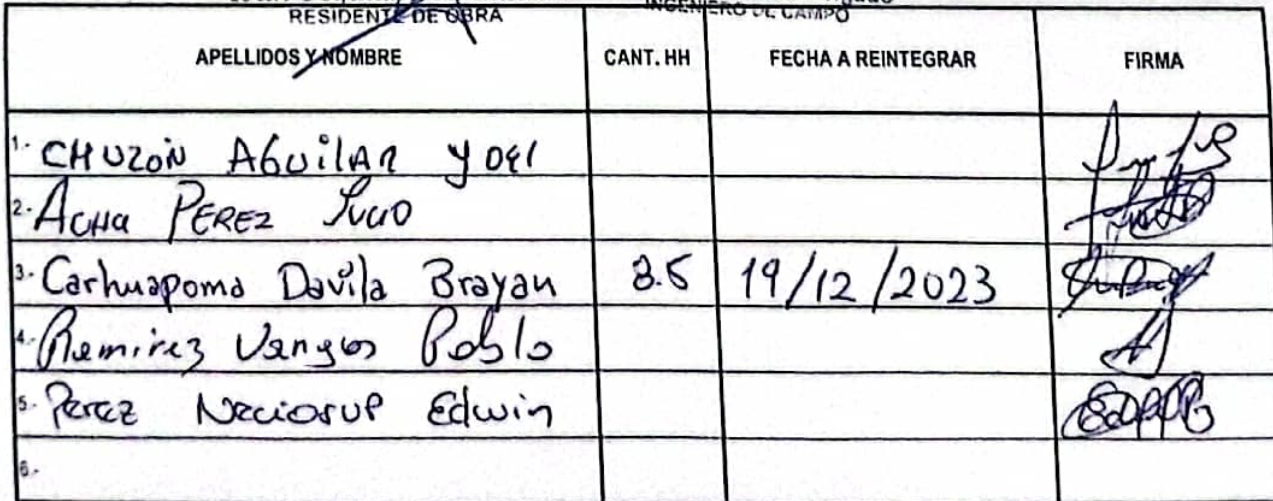 RESIDENTE DE OBRA INGENIERO DE CAMPO
APELLIDOS Y NOMBRE CANT. HH FECHA A REINTEGRAR FIRMA
1.- CHUZON AGUILAR YOEL
2.- ACHA PEREZ
3.- Carhuapoma Davila Brayan 8.5 19/12/2023
4.- Ramirez Pablo
5.- Perez Neciosup Edwin
6.-